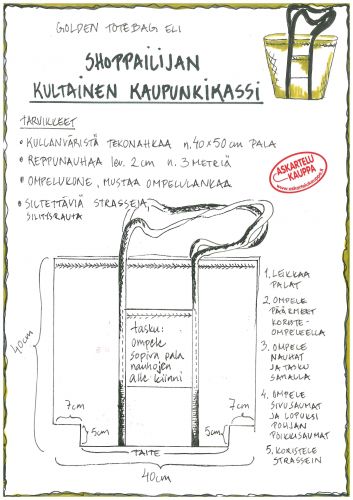 GOLDEN TOTEBAG ELI
SHOPPAILIJAN
KULTAINEN KAUPUNKIKASSI
TARVIKKEET
• KULLANVÄRISTÄ TEKONAHKAA n. 40x50cm PALA
• REPPUNAUHAA lev. 2cm n. 3 METRIÄ
• OMPELUKONE, MUSTAA OMPELULANKAA
• SILITETTÄVIÄ STRASSEJA,
SILITYSRAUTA
ASKARTELU
KAUPPA
www.askartelukauppa.fi
tasku:
ompele
sopiva pala
nauhojen
alle kiinni
40cm
7cm
5cm
7cm
5cm
TAITE
40cm
1. LEIKKAA
PALAT
2. OMPELE
PÄÄRMEET
KORISTE-
OMPELEELLA
3. OMPELE
NAUHAT
JA TASKU
SAMALLA
4. OMPELE
SIVUSAUMAT
JA LOPUKSI
POHJAN
POIKKISAUMAT
5. KORISTELE
STRASSEIN